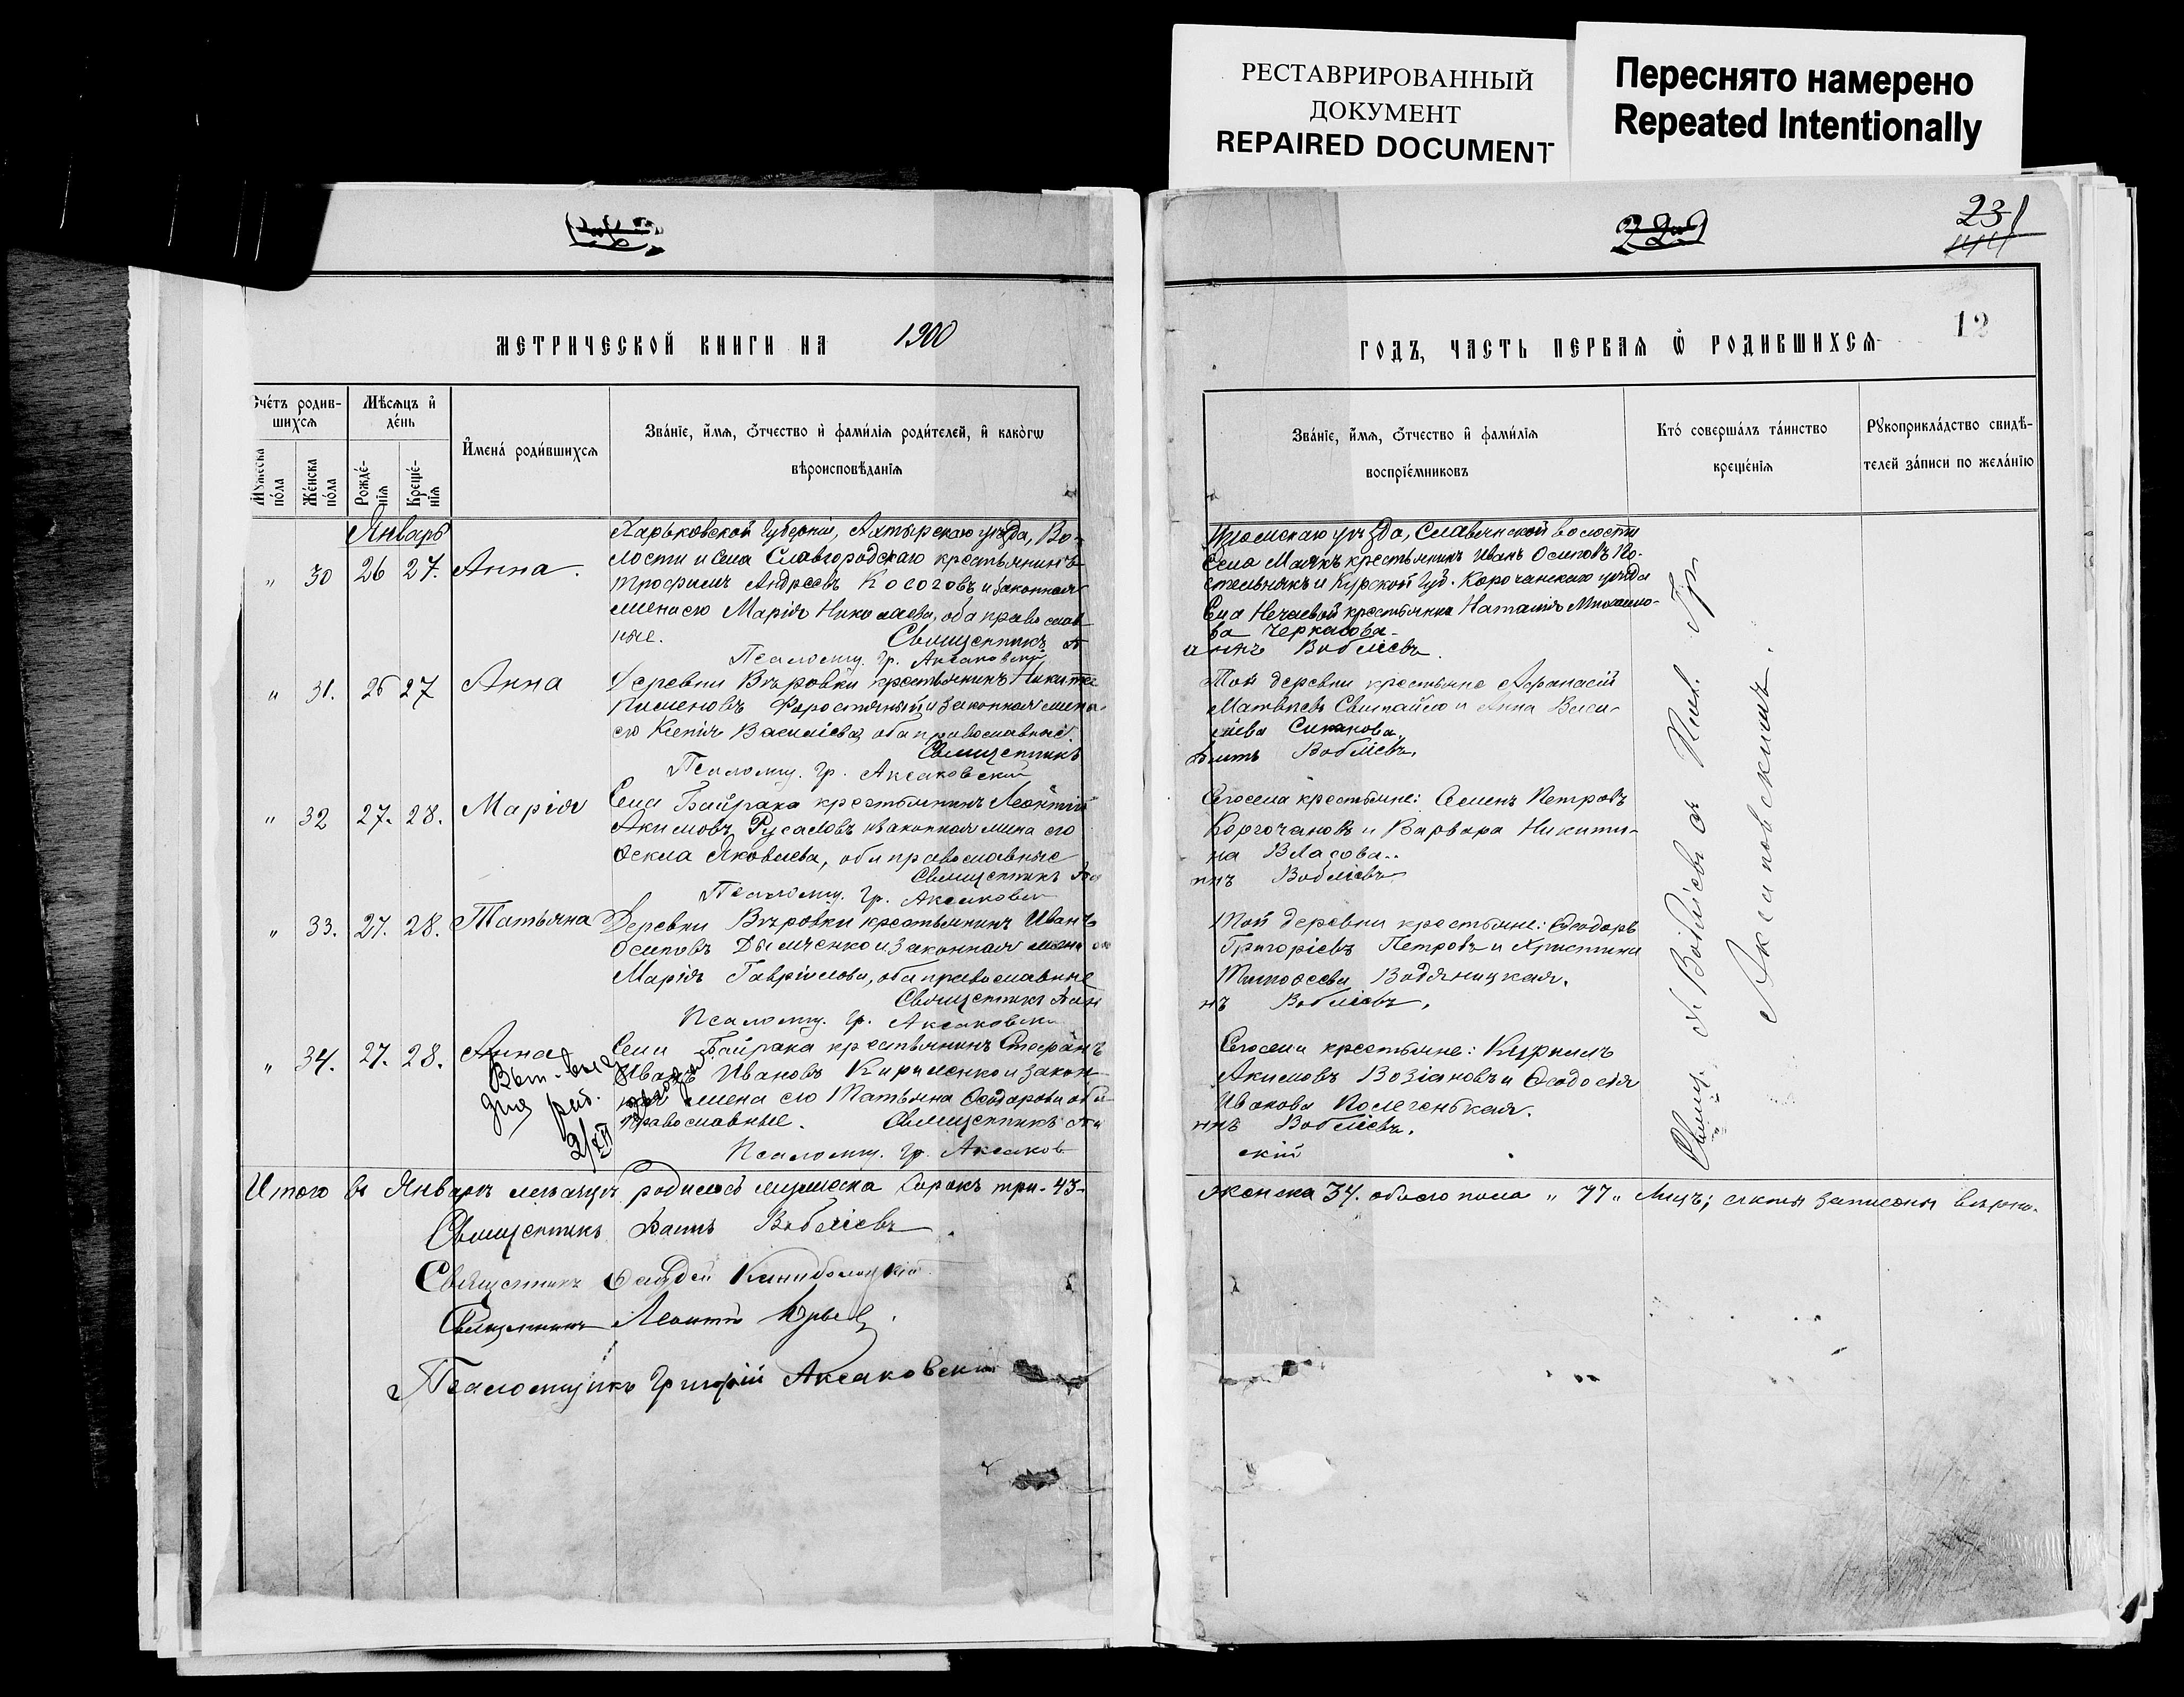 РЕСТАВРИРОВАННЫЙ
ДОКУМЕНТ
REPAIRED DOCUMENT
Переснято намерено
Repeated Intentionally
231
МЕТРИЧЕСКОЙ КНИГИ НА 1900
ГОДЪ, ЧАСТЬ ПЕРВАЯ Ѡ РОДИВШИХСЯ
12
Счётъ родив-
шихся
Мужеска
пола
Женска
пола
Мѣсяцъ и
день
Рожде-
нія
Креще-
нія
Имена родившихся
Званіе, имя, отчество и фамилія родителей, и какогѡ
вѣроисповѣданія
Званіе, имя, отчество и фамилія
воспріемниковъ
Кто совершалъ таинство
крещенія
Рукоприкладство свидѣ-
телей записи по желанію
Январь
" 30 26 27. Анна.
Харьковской Губерніи, Ахтырскаго уѣзда, Во-
лости и Села Славгородскаго крестьянинъ
Трофимъ Андреевъ Косоговъ и законная
жена его Марія Николаева, оба православ
ные. Священникъ
Псаломщ. Гр. Аксаковскій
Изюмскаго уѣзда, Славянской волости
Села Маякъ крестьянинъ Иванъ Осиповъ По-
стельнякъ и Курской Губ. Корочанскаго уѣзда
Села Нечаевой крестьянка Наталія Михаило-
ва Черкасова.
Вобліевъ.
" 31. 26 27 Анна
Деревни Вѣровки крестьянинъ Никита
Пименовъ Форостяный и законная жена
его Ксенія Василіева, оба православные.
Священникъ
Псаломщ. Гр. Аксаковскій
Той деревни крестьяне Афанасій
Матвѣевъ Свинтайло и Анна Васи-
ліева Симакова.
Вобліевъ.
" 32 27. 28. Марія
Села Байрака крестьянинъ Леонтій
Акимовъ Русаловъ и законная жена его
Ѳекла Яковлева, оба православные
Священникъ
Псаломщ. Гр. Аксаковскі
Сего села крестьяне: Семенъ Петровъ
Корочановъ и Варвара Никити-
на Власова.
Вобліевъ
" 33. 27. 28. Татьяна
Деревни Вѣровки крестьянинъ Иванъ
Осиповъ Дымченко и законная жена его
Марія Гавріилова, оба православные
Священникъ
Псаломщ. Гр. Аксаковск
Той деревни крестьяне: Ѳеодоръ
Григоріевъ Петровъ и Христина
Тимоѳеева Водяницкая.
нъ Вобліевъ.
" 34. 27. 28. Анна
2/XII
Села Байрака крестьянинъ Стефанъ
Ивановъ Кириленко и закон-
ная жена его Татьяна Ѳеодорова оба
православные. Священникъ
Псаломщ. Гр. Аксаков
Сего села крестьяне: Кириллъ
Акимовъ Возіановъ и Ѳеодосія
Иванова Колегенькая.
ннъ Вобліевъ.
скій
Свящ. Вобліевъ съ Псал. Гр.
Аксаковскимъ.
Итого въ Январѣ мѣсяцѣ родилось мужеска сорокъ три - 43-
женска 34. обоего пола " 77 " лицъ; акты записаны вѣрно.
Священникъ Вобліевъ
Священникъ
Священникъ Леонтій Юрьевъ
Псаломщикъ Григорій Аксаковскій